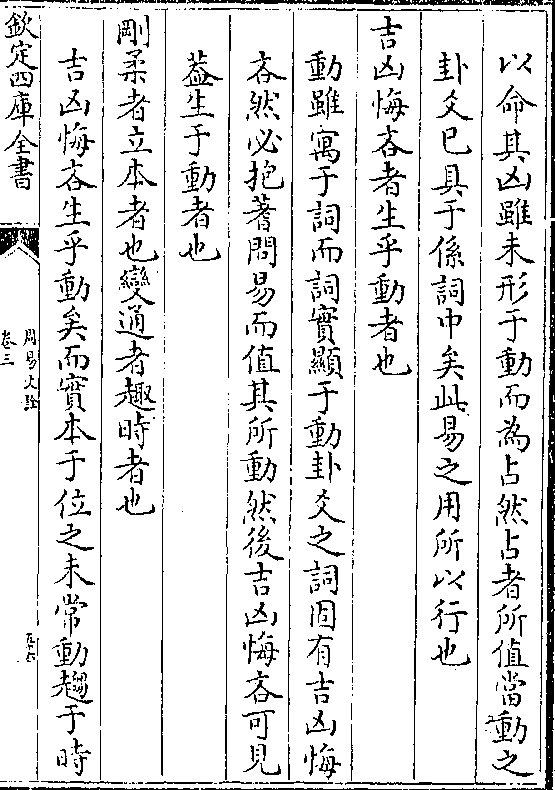 以命其凶雖未形于動而為占然占者所值當動之
卦爻已具于係詞中矣此易之用所以行也
吉凶悔吝者生乎動者也
動雖寓于詞而詞實顯于動卦爻之詞固有吉凶悔
吝然必抱蓍問易而值其所動然後吉凶悔吝可見
葢生于動者也
剛柔者立本者也變通者趣時者也
吉凶悔吝生乎動矣而實本于位之未常動趨于時
欽定四庫全書
周易文詮
卷三